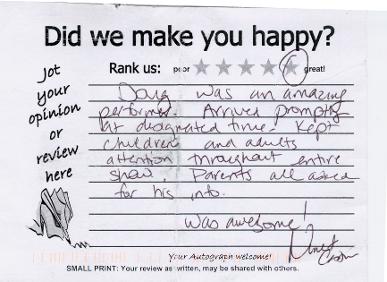 Did we make you happy?
Rank us: poor great!
Jot
your
opinion
or
review
here
Doug was an amazing
performer. Arrived promptly
at designated time. Kept
children and adults
attention throughout entire
show. Parents all asked
for his info.
was awesome!
Your Autograph welcome!
SMALL PRINT: Your review as written, may be shared with others.